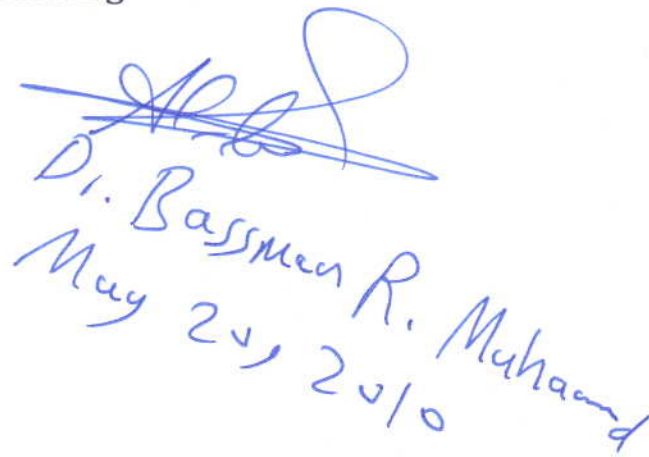 Dr. Bassman R. Muhammad
May 20, 2010